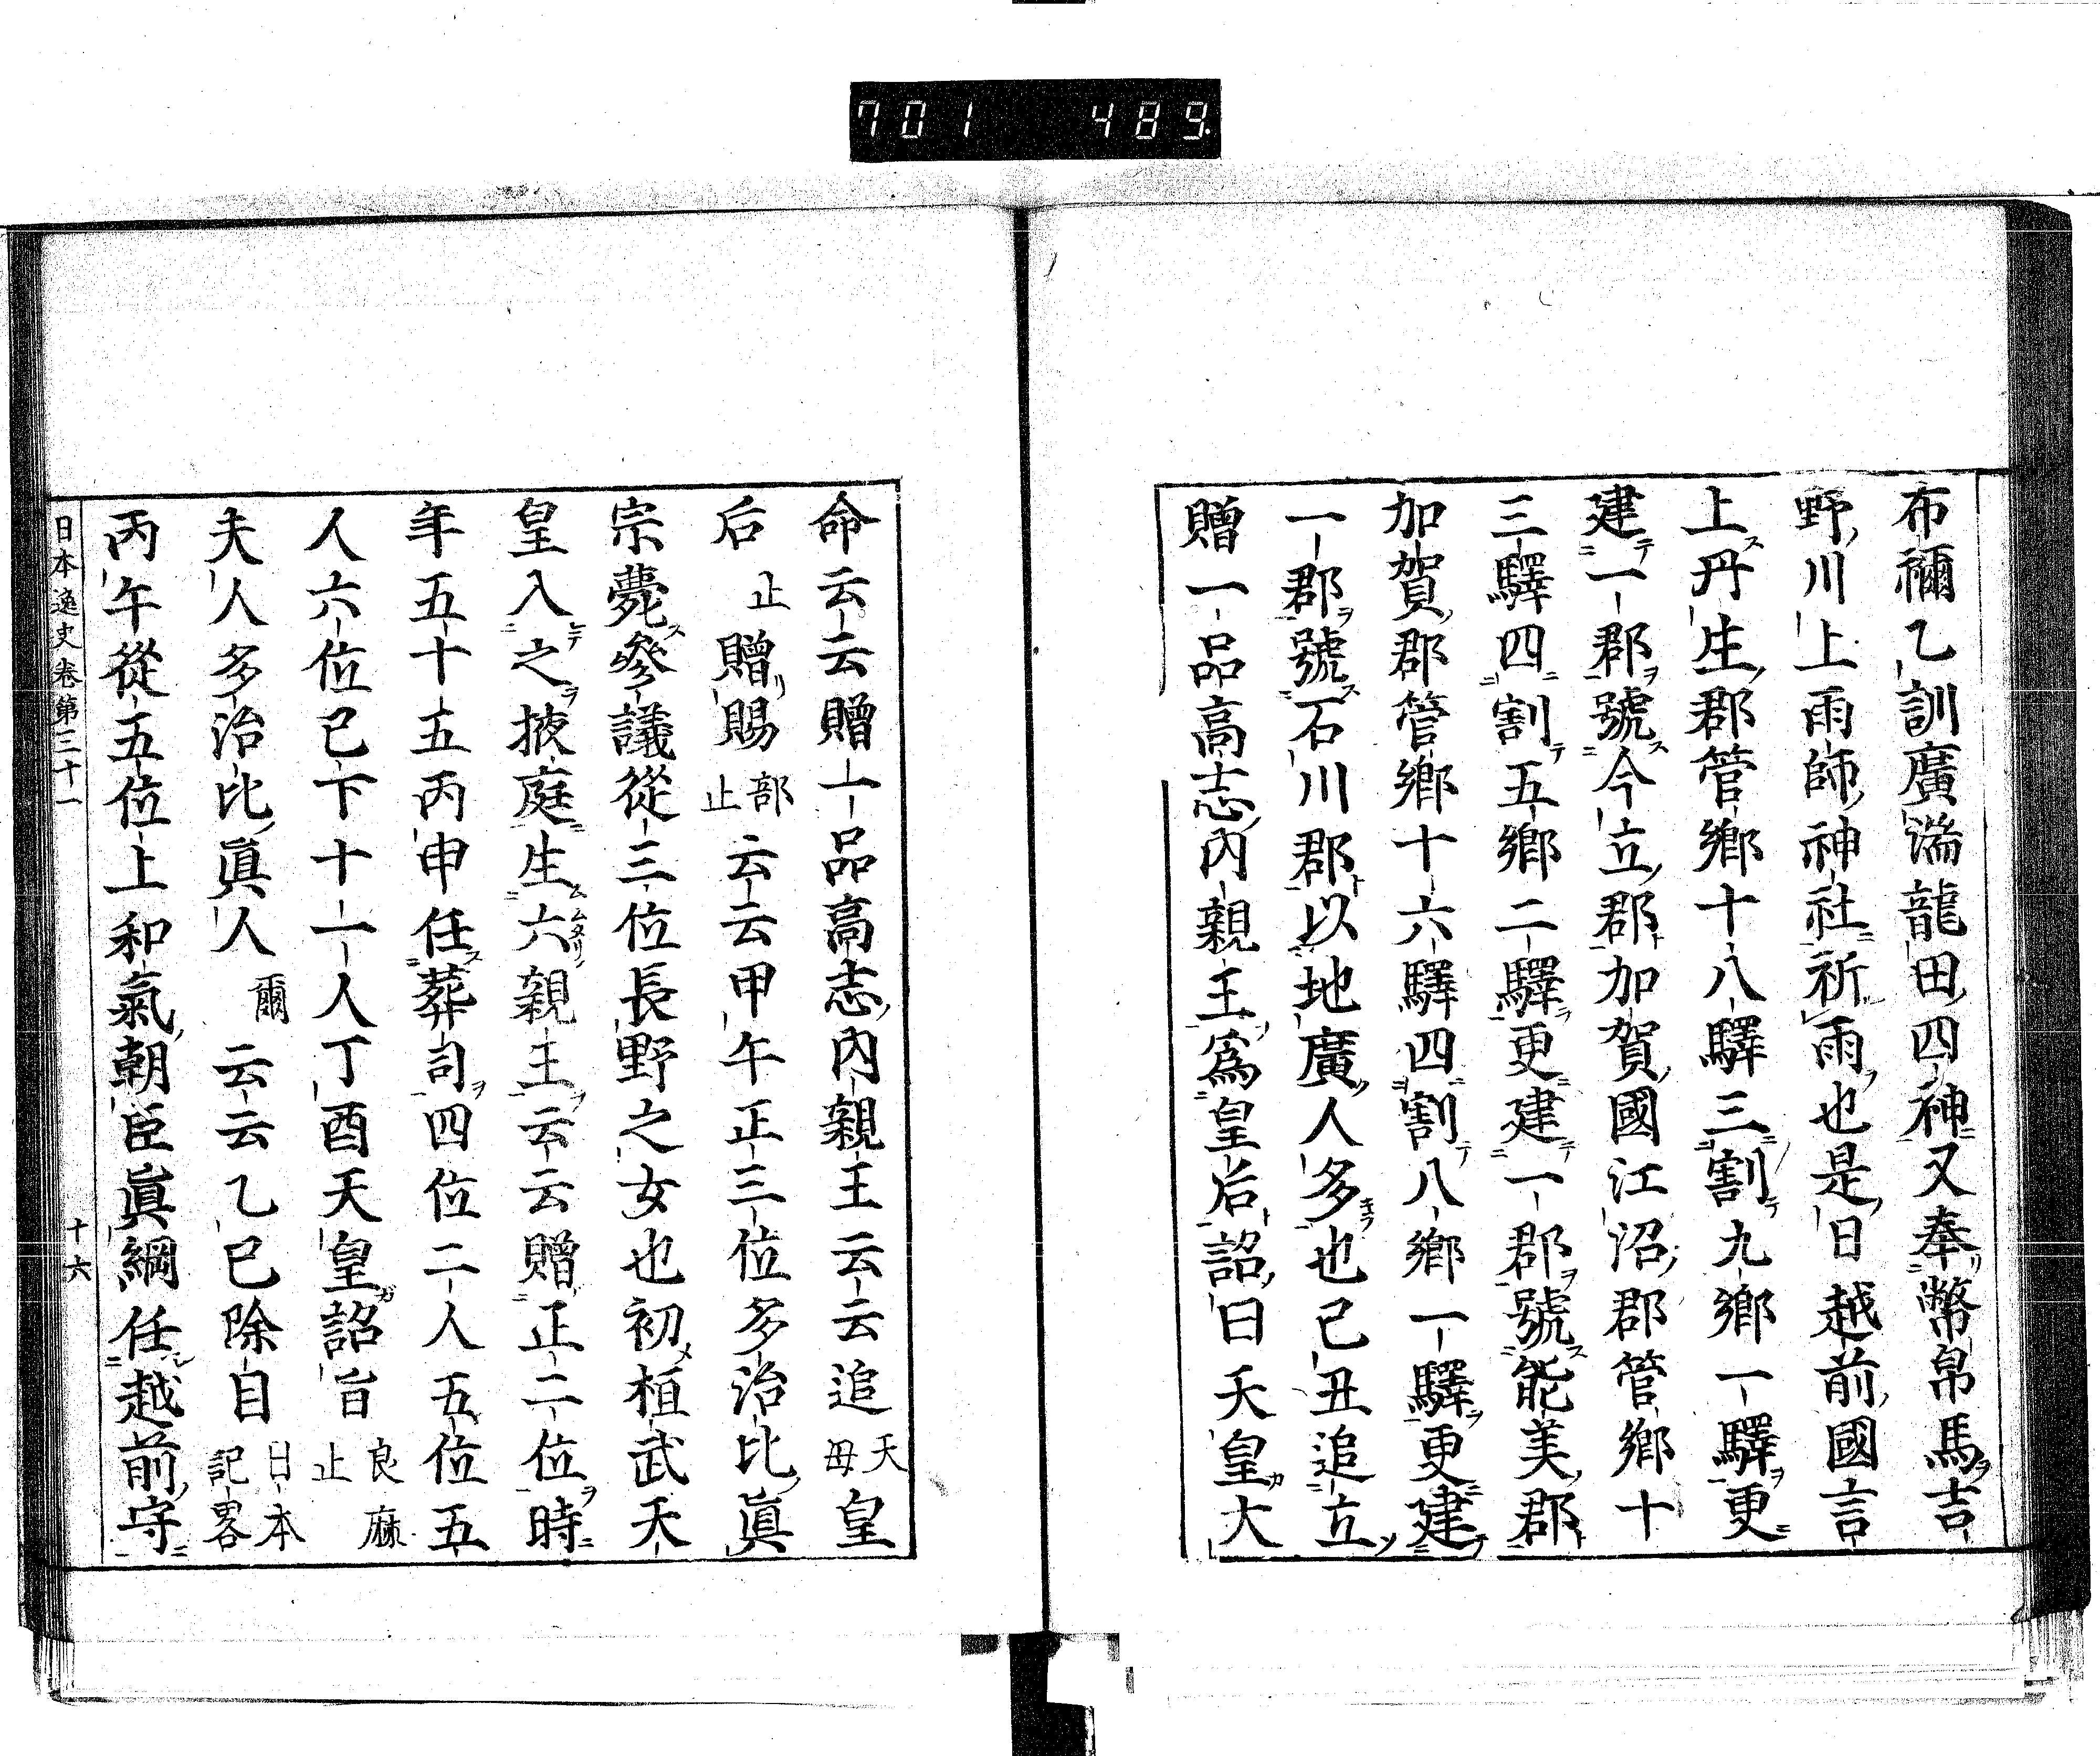 701 489
布禰乙訓廣湍龍田四神又奉幣帛馬吉
野川上雨師神社祈雨也是日越前國言
上丹生郡管鄉十八驛三割九鄉一驛更
建一郡號今立郡加賀國江沼郡管鄉十
三驛四割五鄉二驛更建一郡號能美郡
加賀郡管鄉十六驛四割八鄉一驛更建
一郡號石川郡以地廣人多也己丑追立
贈一品高志內親王爲皇后詔曰天皇大
命云云贈一品高志內親王云云追天母皇
后止贈賜部止云云甲午正三位多治比眞
宗薨參議從三位長野之女也初桓武天
皇入之掖庭生六親王云云贈正二位時
年五十五丙申任葬司四位二人五位五
人六位已下十一人丁酉天皇詔旨良麻止
夫人多治比眞人爾云云乙巳除目日本記畧
丙午從五位上和氣朝臣眞綱任越前守
日本逸史卷第三十一
十六